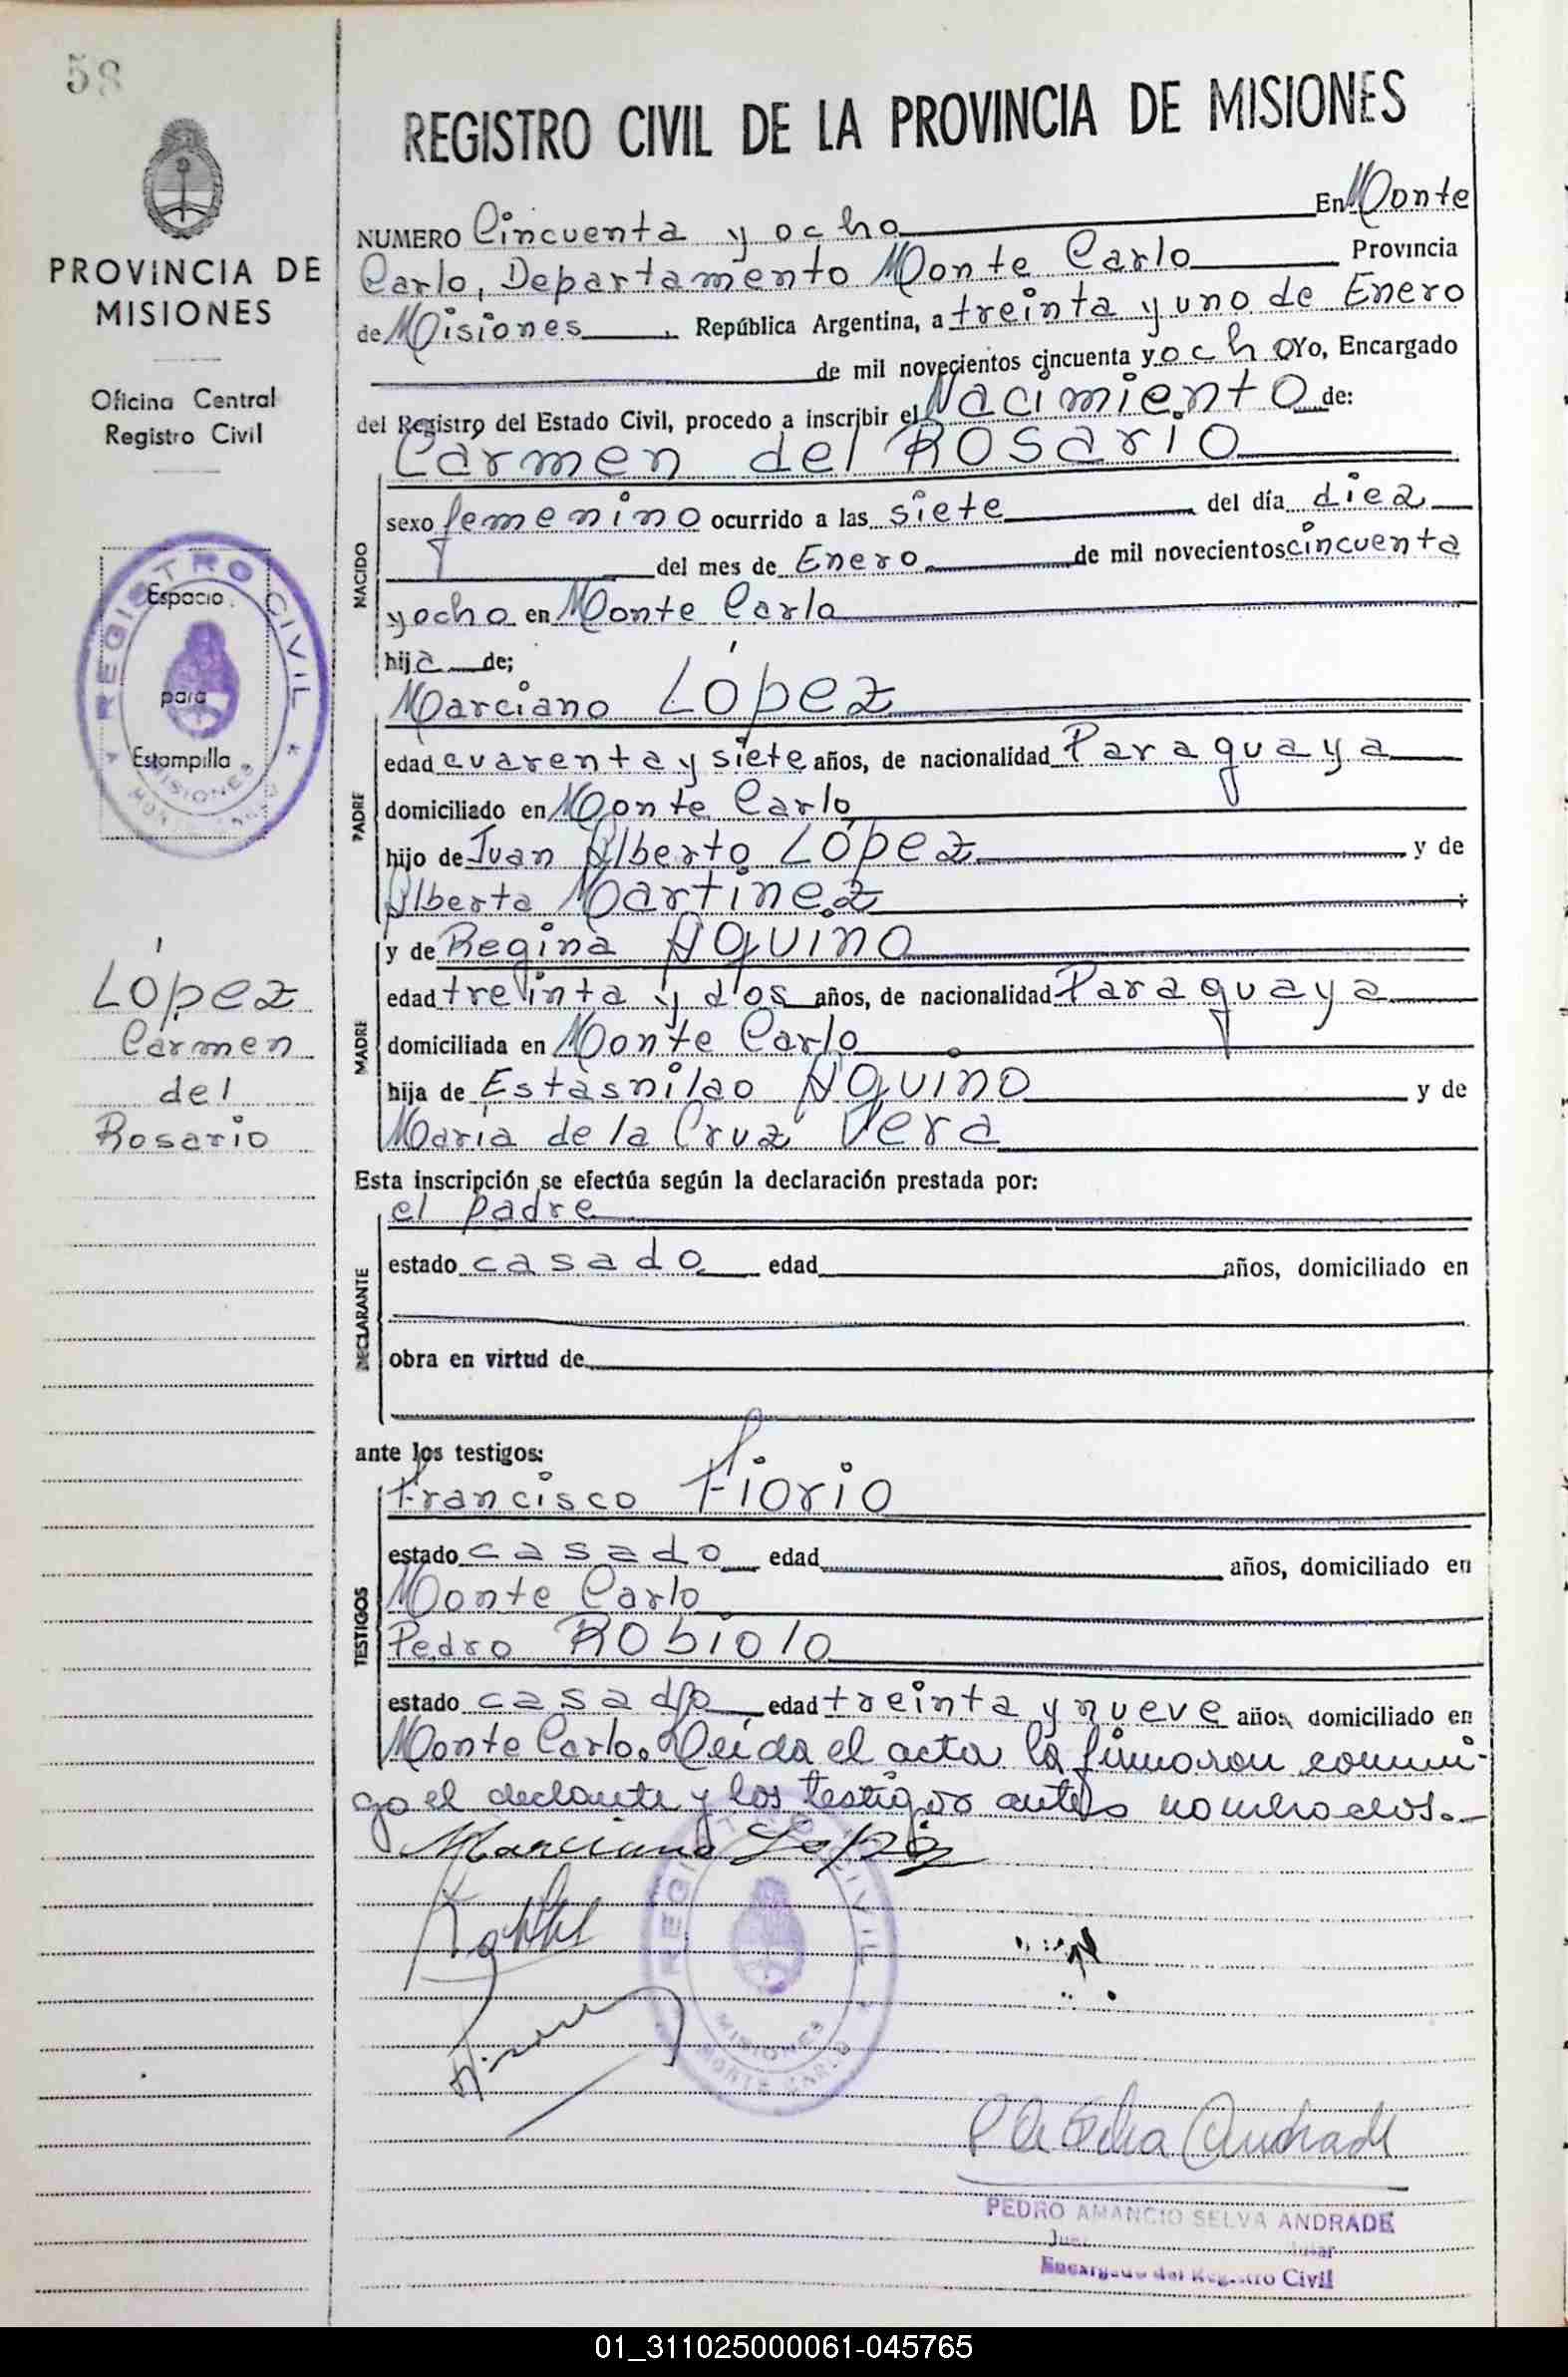 58
PROVINCIA DE
MISIONES
Oficina Central
Registro Civil
REGISTRO CIVIL
Espacio
para
Estampilla
MISIONES
López
Carmen
del
Rosario
REGISTRO CIVIL DE LA PROVINCIA DE MISIONES
NUMERO Cincuenta y ocho En Monte
Carlo, Departamento Monte Carlo Provincia
de Misiones, República Argentina, a treinta y uno de Enero
de mil novecientos cincuenta y ocho Yo, Encargado
del Registro del Estado Civil, procedo a inscribir el Nacimiento de:
Carmen del Rosario
NACIDO
sexo femenino ocurrido a las siete del día diez
del mes de Enero de mil novecientos cincuenta
y ocho en Monte Carlo
hija de;
Marciano López
PADRE
edad cuarenta y siete años, de nacionalidad Paraguaya
domiciliado en Monte Carlo
hijo de Juan Alberto López y de
Alberta Martínez;
MADRE
y de Regina Aquino
edad treinta y dos años, de nacionalidad Paraguaya
domiciliada en Monte Carlo
hija de Estasnilao Aquino y de
María de la Cruz Vera
Esta inscripción se efectúa según la declaración prestada por:
el padre
DECLARANTE
estado casado edad años, domiciliado en
obra en virtud de
ante los testigos:
Francisco Fiorio
TESTIGOS
estado casado edad años, domiciliado en
Monte Carlo
Pedro Robiolo
estado casado edad treinta y nueve años, domiciliado en
Monte Carlo. Leída el acta la firmaron conmi-
go el declante y los testigos antes nombrados.
Marciano López
REGISTRO CIVIL
MISIONES
MONTE CARLO
P A Selva Andrade
PEDRO AMANCIO SELVA ANDRADE
Encargado del Registro Civil
01_311025000061-045765